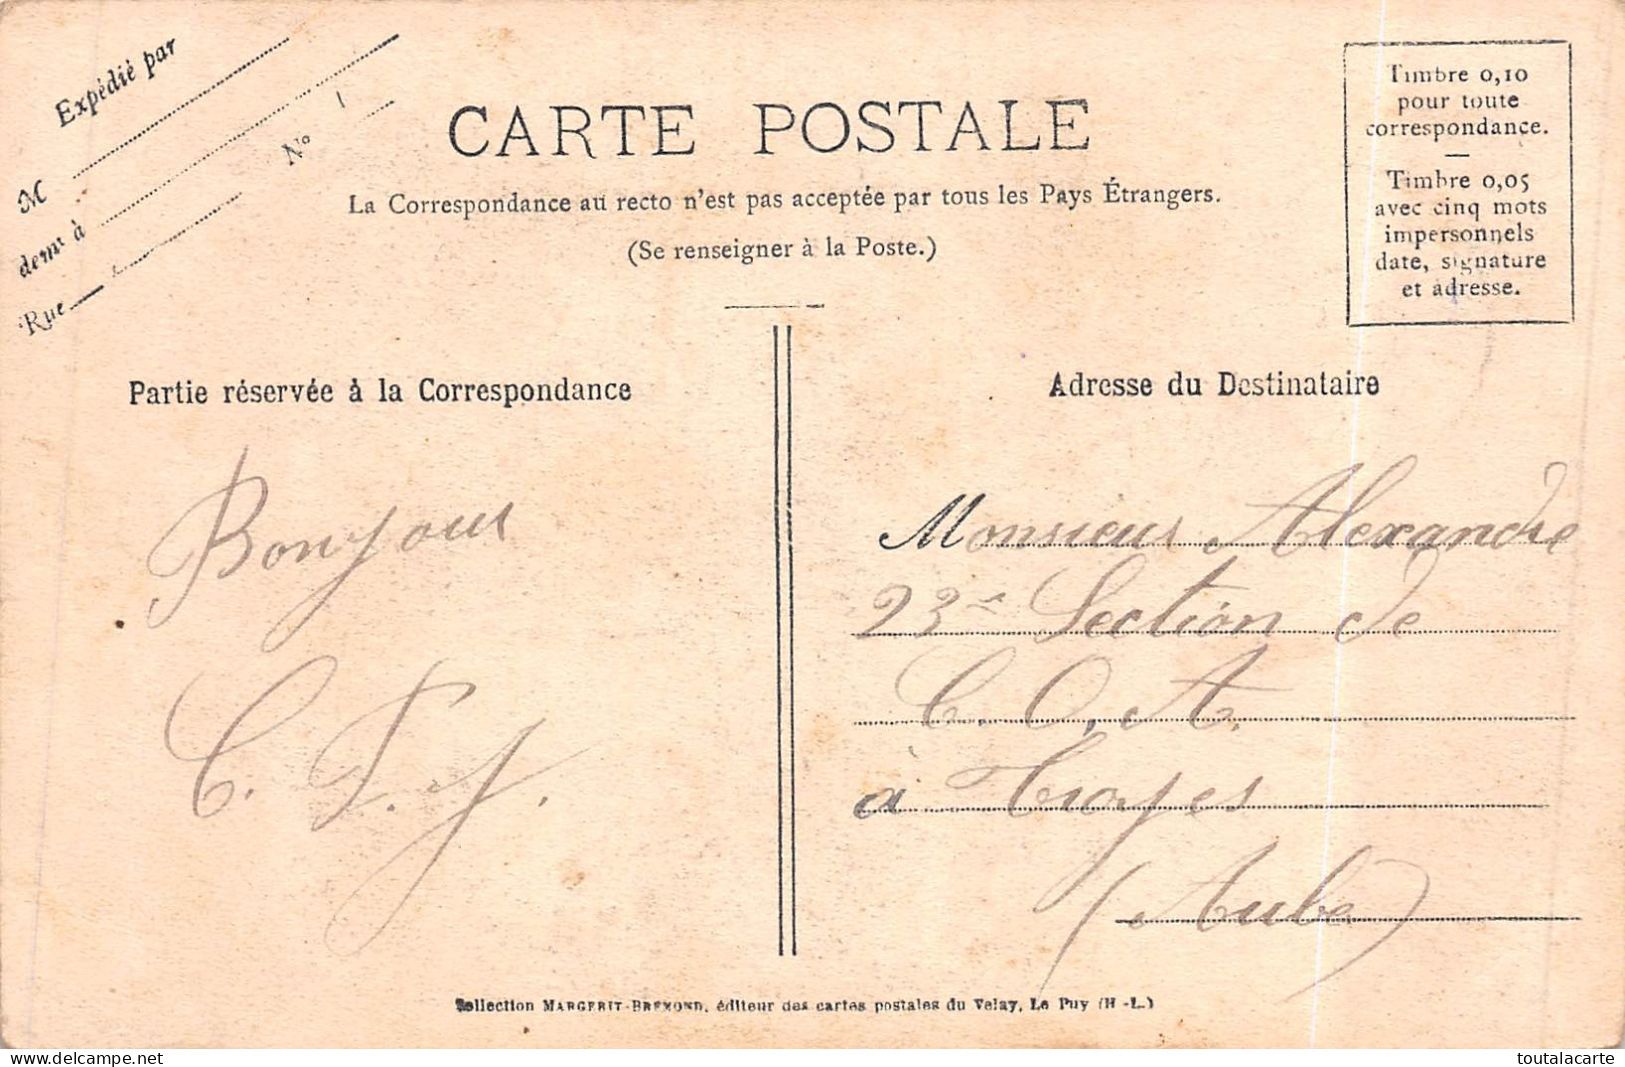 Expédié par
M
demt à
Rue
No
CARTE POSTALE
La Correspondance au recto n'est pas acceptée par tous les Pays Étrangers.
(Se renseigner à la Poste.)
Timbre 0,10
pour toute
correspondance.
—
Timbre 0,05
avec cinq mots
impersonnels
date, signature
et adresse.
Partie réservée à la Correspondance
Bonjour
Adresse du Destinataire
Monsieur Alexandre
23e Section de
C. O. A.
à Troyes
(Aube)
Collection MARGERIT-BREMOND, éditeur des cartes postales du Velay, Le Puy (H-L.)
delcampe.net
toutalacarte